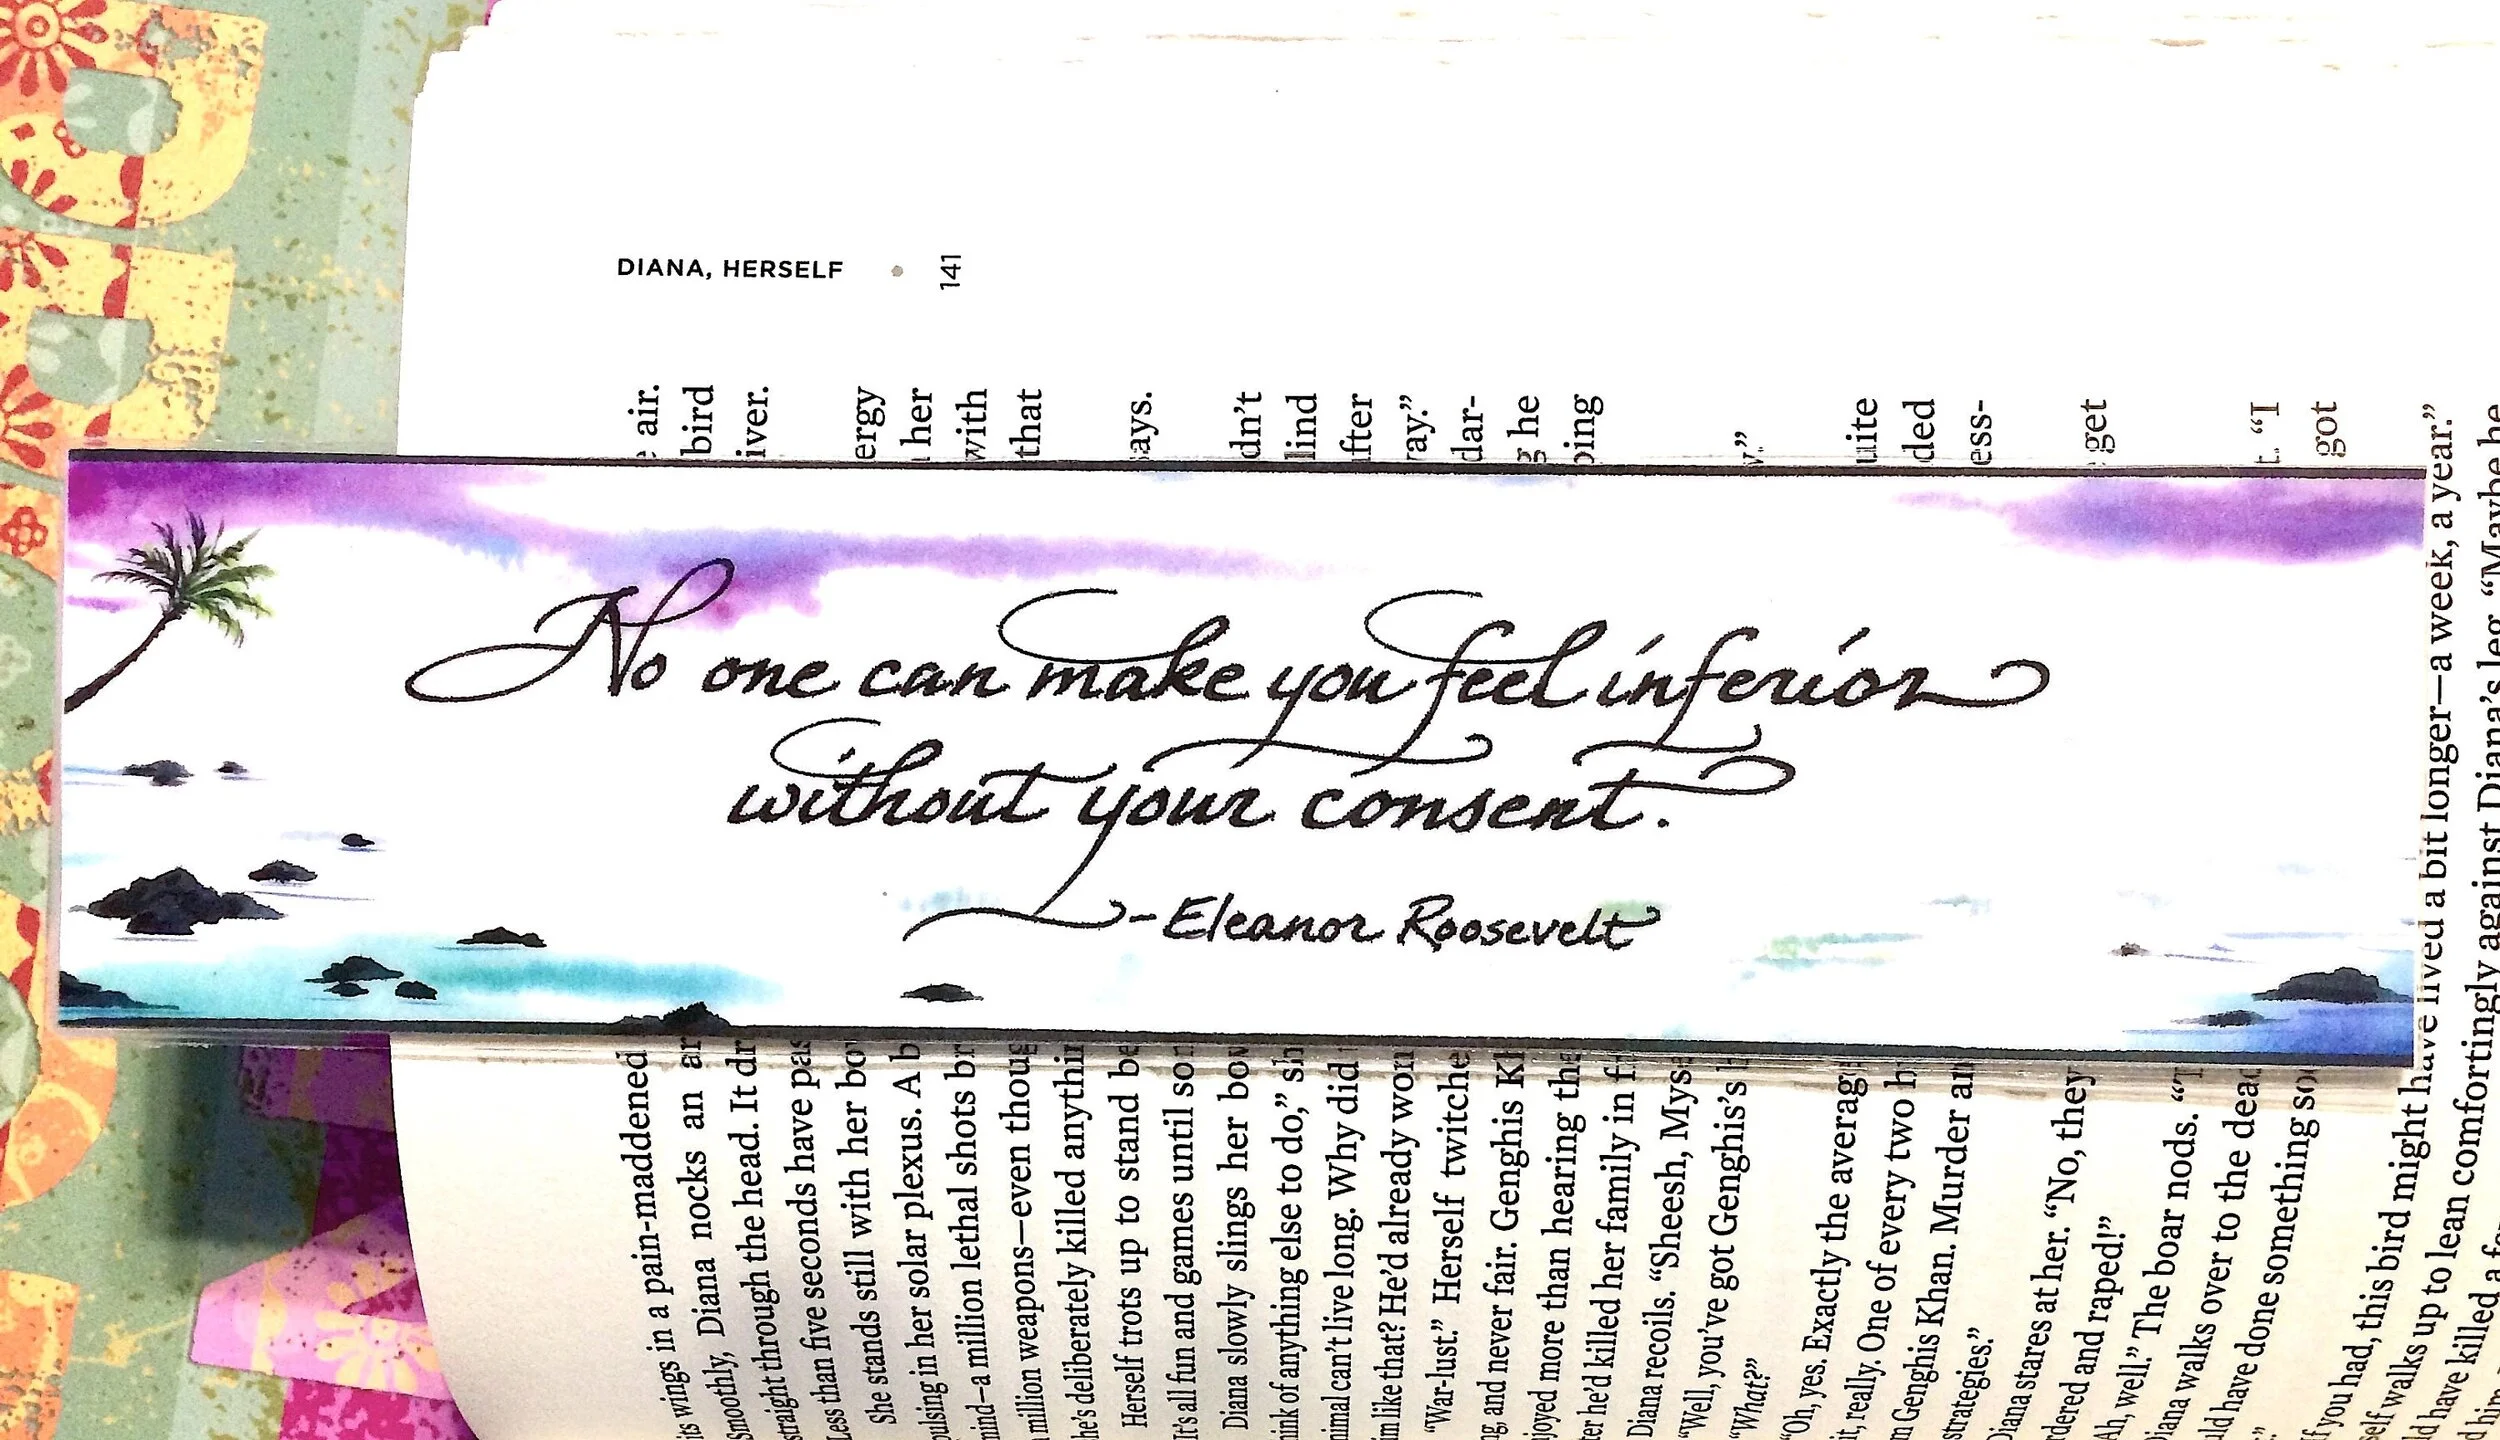 DIANA, HERSELF • 141
No one can make you feel inferior
without your consent.
-Eleanor Roosevelt
air.
bird
iver.
ergy
her
with
that
ays.
dn't
lind
fter
ray."
dar-
he
ping
uite
ded
ess-
get
"I
got
its wings in a pain-maddened
Smoothly, Diana nocks an ar
straight through the head. It dr
Less than five seconds have pas
She stands still with her bo
pulsing in her solar plexus. A b
mind—a million lethal shots br
million weapons—even thoug
he's deliberately killed anythin
Herself trots up to stand be
It's all fun and games until son
Diana slowly slings her bow
hink of anything else to do," sh
nimal can't live long. Why did
im like that? He'd already won
"War-lust." Herself twitche
ng, and never fair. Genghis Kh
joyed more than hearing the
ter he'd killed her family in f
Diana recoils. "Sheesh, Mys
"Well, you've got Genghis's
"What?"
"Oh, yes. Exactly the averag
it, really. One of every two h
m Genghis Khan. Murder an
strategies."
Diana stares at her. "No, they
rdered and raped!"
"Ah, well." The boar nods. "T
Diana walks over to the dead
uld have done something so
"If you had, this bird might have lived a bit longer—a week, a year."
self walks up to lean comfortingly against Diana's leg. "Maybe he
ld have killed a fe